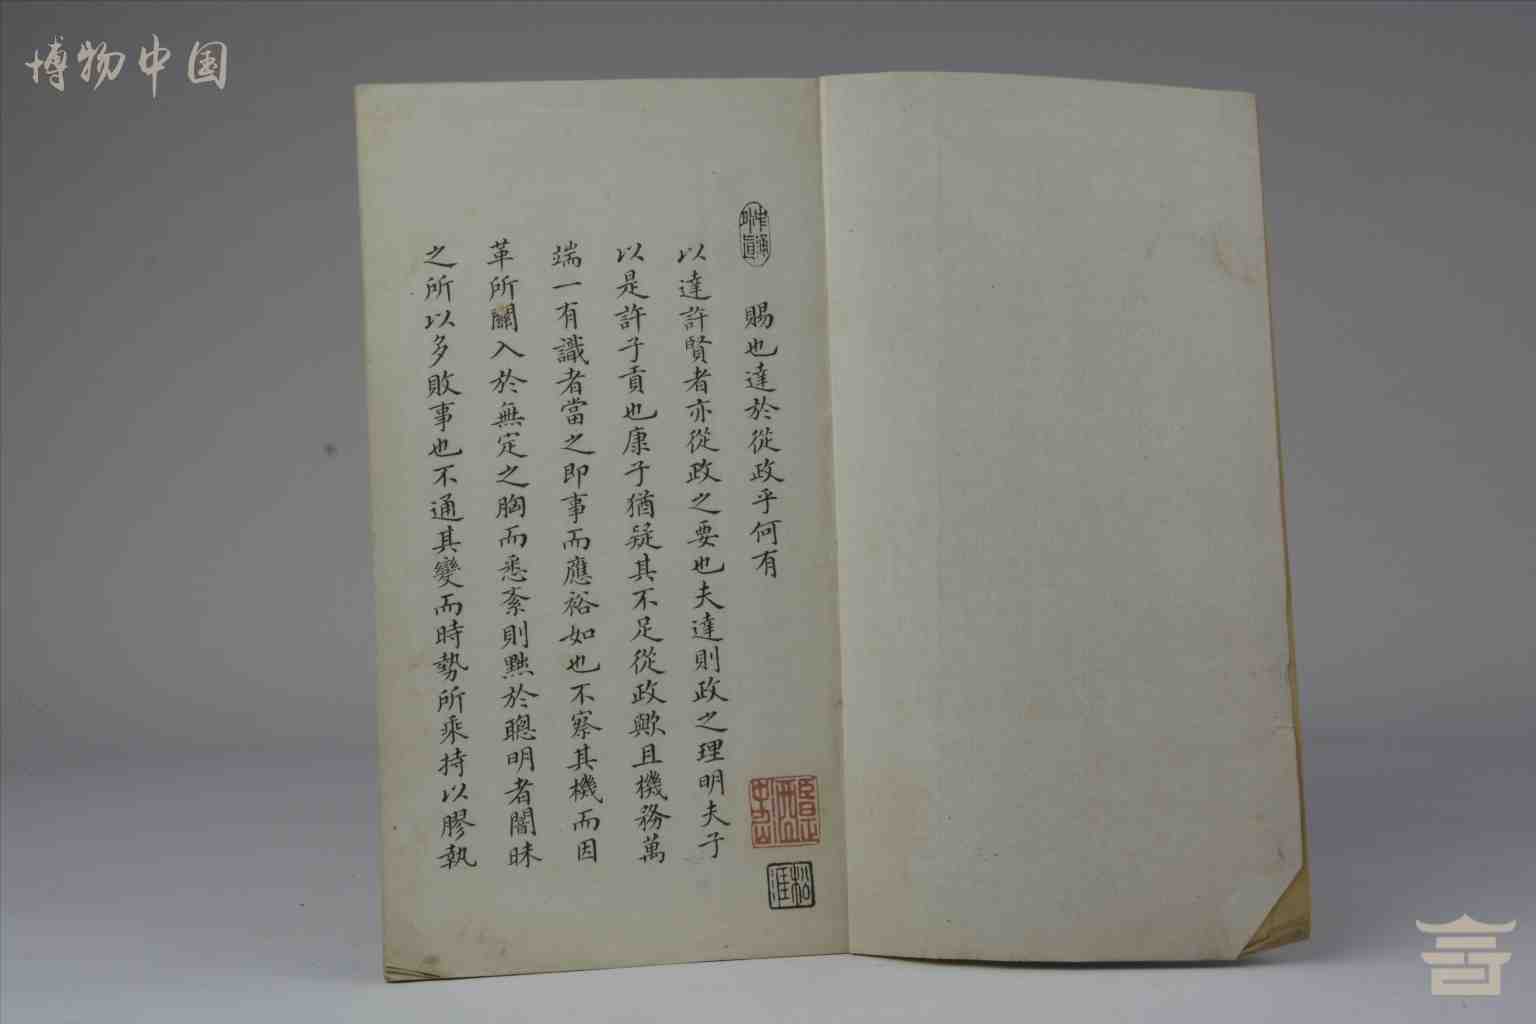 博物中国
賜也達於從政乎何有
以達許賢者亦從政之要也夫達則政之理明夫子
以是許子貢也康子猶疑其不足從政歟且機務萬
端一有識者當之即事而應裕如也不察其機而因
革所關入於無定之胸而悉紊則黠於聰明者闇昧
之所以多敗事也不通其變而時勢所乘持以膠執
松淮